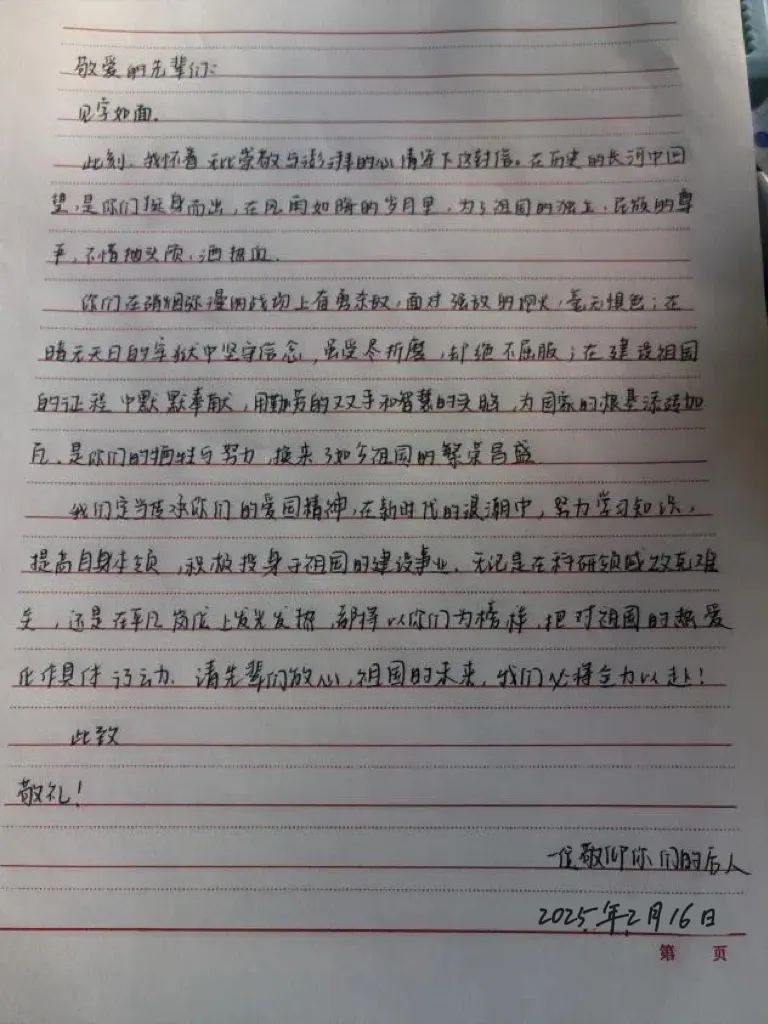 敬爱的先辈们:
见字如面。
此刻，我怀着无比崇敬与澎湃的心情写下这封信。在历史的长河中回
望，是你们挺身而出，在风雨如晦的岁月里，为了祖国的独立、民族的尊
严，不惜抛头颅，洒热血。
你们在硝烟弥漫的战场上奋勇杀敌，面对强敌的炮火，毫无惧色；在
暗无天日的牢狱中坚守信念，虽受尽折磨，却绝不屈服；在建设祖国
的征程中默默奉献，用勤劳的双手和智慧的头脑，为国家的根基添砖加
瓦。是你们的牺牲与努力，换来了如今祖国的繁荣昌盛
我们定当传承你们的爱国精神，在新时代的浪潮中，努力学习知识，
提高自身本领，积极投身于祖国的建设事业。无论是在科研领域攻克难
关，还是在平凡岗位上发光发热，都将以你们为榜样，把对祖国的热爱
化作具体行动。请先辈们放心，祖国的未来，我们必将全力以赴！
此致
敬礼！
一位敬仰你们的后人
2025年2月16日
第 页